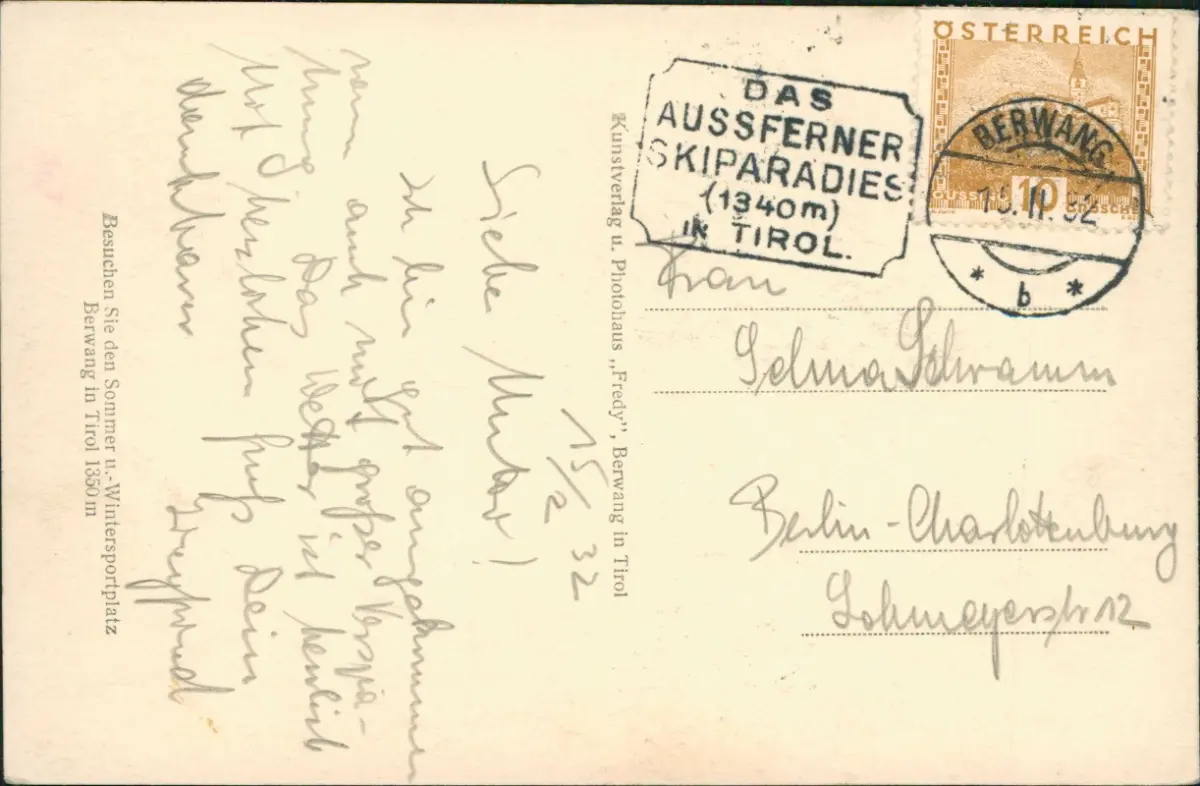 ÖSTERREICH
GÜSSING 10 GROSCHEN
BERWANG
II. 32
* b *
DAS
AUSSFERNER
SKIPARADIES
(1340m)
IN TIROL.
Frau
Selma Schramm
Berlin-Charlottenburg
Lohmeyerstr 12
Kunstverlag u. Photohaus „Fredy", Berwang in Tirol
15/2 32
Liebe Mutter!
Ich bin gut angekommen
wenn auch mit großer Verspä-
tung Das Wetter ist herrlich
Mit herzlichem Gruß Dein
dankbarer
Besuchen Sie den Sommer u.-Wintersportplatz
Berwang in Tirol 1350 m